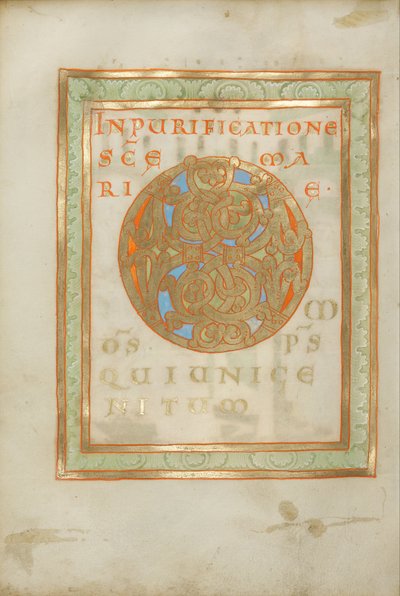 INPURIFICATIONE·
SC̄E MA
RI E·
O M
D̄S P̄S
QUIUNIGE
NITUM